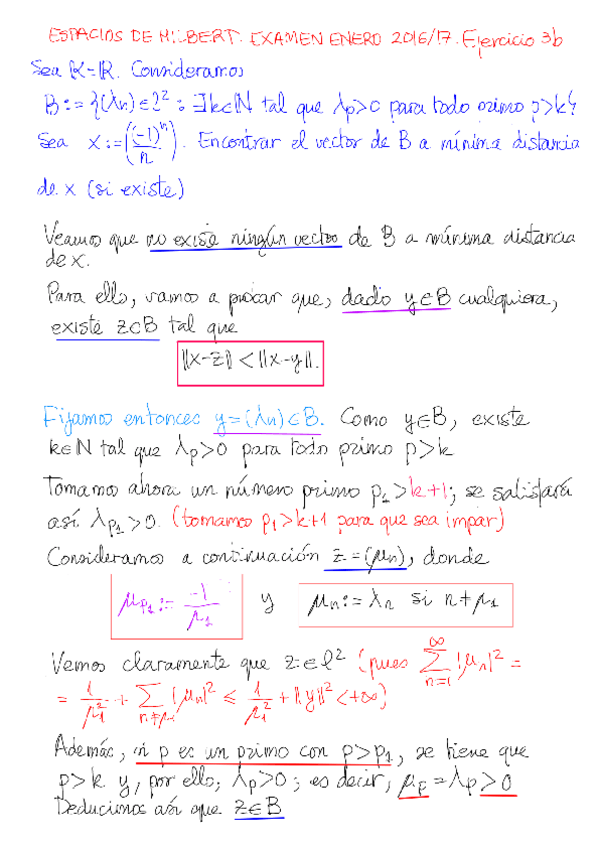 ESPACIOS DE HILBERT. EXAMEN ENERO 2016/17. Ejercicio 3b
Sea K=ℝ. Consideramos
B := {(λn)∈ℓ² : ∃k∈ℕ tal que λp>0 para todo primo p>k}
Sea x := ((-1)ⁿ/n). Encontrar el vector de B a mínima distancia
de x (si existe)
Veamos que no existe ningún vector de B a mínima distancia
de x.
Para ello, vamos a probar que, dado y∈B cualquiera,
existe z∈B tal que
||x-z|| < ||x-y||.
Fijamos entonces y=(λn)∈B. Como y∈B, existe
k∈ℕ tal que λp>0 para todo primo p>k
Tomamos ahora un número primo p₁>k+1; se satisfará
así λp₁>0. (tomamos p₁>k+1 para que sea impar)
Consideramos a continuación z=(μn), donde
μp₁ := -1/p₁ y μn := λn si n≠p₁
Vemos claramente que z∈ℓ² (pues ∑_{n=1}^{∞} |μn|² =
= 1/p₁² + ∑_{n≠p₁} |μn|² ≤ 1/p₁² + ||y||² < +∞)
Además, si p es un primo con p>p₁, se tiene que
p>k y, por ello, λp>0; es decir, μp=λp>0
Deducimos así que z∈B